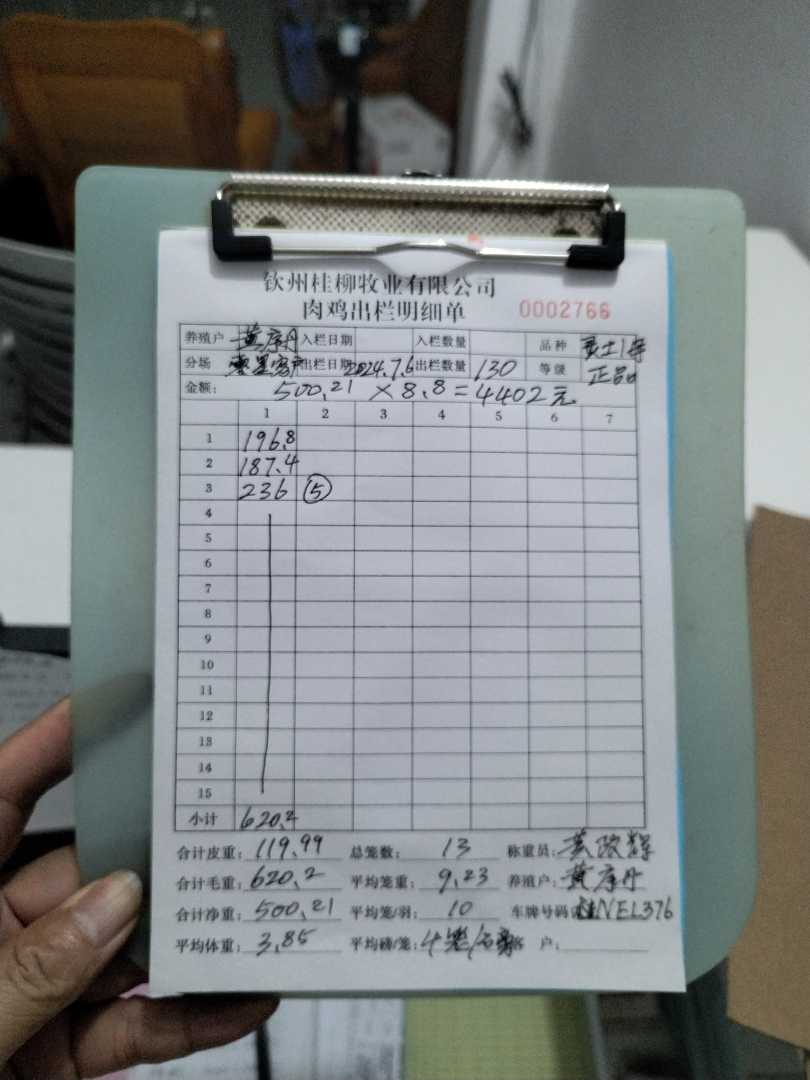 钦州桂柳牧业有限公司
肉鸡出栏明细单 0002766
养殖户 黄序丹 入栏日期 入栏数量 品种
分场 出栏日期 2024.7.6 出栏数量 130 等级 正品
金额: 500.21 × 8.8 = 4402元
1 2 3 4 5 6 7
1 196.8
2 187.4
3 236 ⑤
4
5
6
7
8
9
10
11
12
13
14
15
小计 620.2
合计皮重: 119.99 总笼数: 13 称重员:
合计毛重: 620.2 平均笼重: 9.23 养殖户: 黄序丹
合计净重: 500.21 平均笼/羽: 10 车牌号码: 桂NEL376
平均体重: 3.85 平均磅/笼: 4笼/ 户: